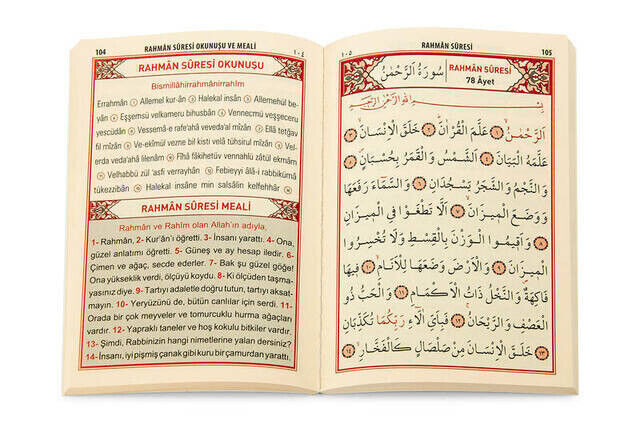 104
RAHMÂN SÛRESİ OKUNUŞU VE MEALİ
١٠٤
RAHMÂN SÛRESİ OKUNUŞU
Bismillâhirrahmânirrahîm
Errahmân ① Allemel kur-ân ② Halekal insân ③ Allemehül be-
yân ④ Eşşemsü velkameru bihusbân ⑤ Vennecmü veşşeceru
yescüdân ⑥ Vessemâ-e rafe'ahâ veveda'al mîzân ⑦ Ellâ tetğav
fil mîzân ⑧ Ve-ekîmul vezne bil kisti velâ tühsirul mîzân ⑨ Vel-
erda veda'ahâ lilenâm ⑩ Fîhâ fâkihetüv vennahlü zâtül ekmâm
⑪ Velhabbü zül 'asfi verrayhân ⑫ Febieyyi âlâ-i rabbikümâ
tükezzibân ⑬ Halekal insâne min salsâlin kelfehhâr ⑭
RAHMÂN SÛRESİ MEALİ
Rahmân ve Rahîm olan Allah'ın adıyla,
1- Rahmân, 2- Kur'ân'ı öğretti. 3- İnsanı yarattı. 4- Ona,
güzel anlatımı öğretti. 5- Güneş ve ay hesap iledir. 6-
Çimen ve ağaç, secde ederler. 7- Bak şu güzel göğe!
Ona yükseklik verdi, ölçüyü koydu. 8- Ki ölçüden taşma-
yasınız diye. 9- Tartıyı adaletle doğru tutun, tartıyı aksat-
mayın. 10- Yeryüzünü de, bütün canlılar için serdi. 11-
Orada bir çok meyveler ve tomurcuklu hurma ağaçları
vardır. 12- Yapraklı taneler ve hoş kokulu bitkiler vardır.
13- Şimdi, Rabbinizin hangi nimetlerine yalan dersiniz?
14- İnsanı, iyi pişmiş çanak gibi kuru bir çamurdan yarattı.
١٠٥
RAHMÂN SÛRESİ
105
سُورَةُ الرَّحْمٰنِ
RAHMÂN SÛRESİ
78 Âyet
بِسْمِ اللّٰهِ الرَّحْمٰنِ الرَّحِيمِ
اَلرَّحْمٰنُ ۝١ عَلَّمَ الْقُرْاٰنَ ۝٢ خَلَقَ الْاِنْسَانَ ۝٣
عَلَّمَهُ الْبَيَانَ ۝٤ اَلشَّمْسُ وَالْقَمَرُ بِحُسْبَانٍ ۝٥
وَالنَّجْمُ وَالشَّجَرُ يَسْجُدَانِ ۝٦ وَالسَّمَاءَ رَفَعَهَا
وَوَضَعَ الْمِيزَانَ ۝٧ اَلَّا تَطْغَوْا فِي الْمِيزَانِ
۝٨ وَاَقِيمُوا الْوَزْنَ بِالْقِسْطِ وَلَا تُخْسِرُوا
الْمِيزَانَ ۝٩ وَالْاَرْضَ وَضَعَهَا لِلْاَنَامِ ۝١٠ فِيهَا
فَاكِهَةٌ وَالنَّخْلُ ذَاتُ الْاَكْمَامِ ۝١١ وَالْحَبُّ ذُو
الْعَصْفِ وَالرَّيْحَانُ ۝١٢ فَبِاَيِّ اٰلَاءِ رَبِّكُمَا تُكَذِّبَانِ
۝١٣ خَلَقَ الْاِنْسَانَ مِنْ صَلْصَالٍ كَالْفَخَّارِ ۝١٤